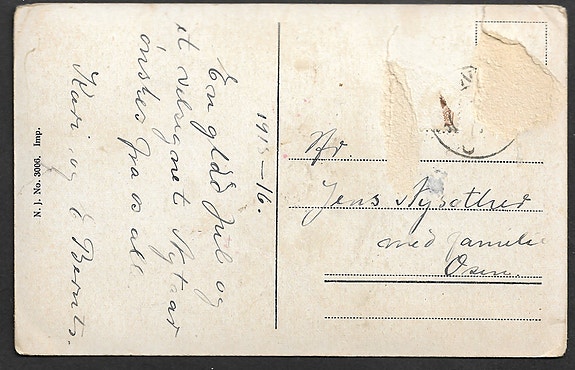 1915–16.
En glad Jul og
et velsignet Nytaar
ønskes fra os all
Kari og Bernts.
N. J. No. 3006. Imp.
Hr.
Jens
med familie
Osen.